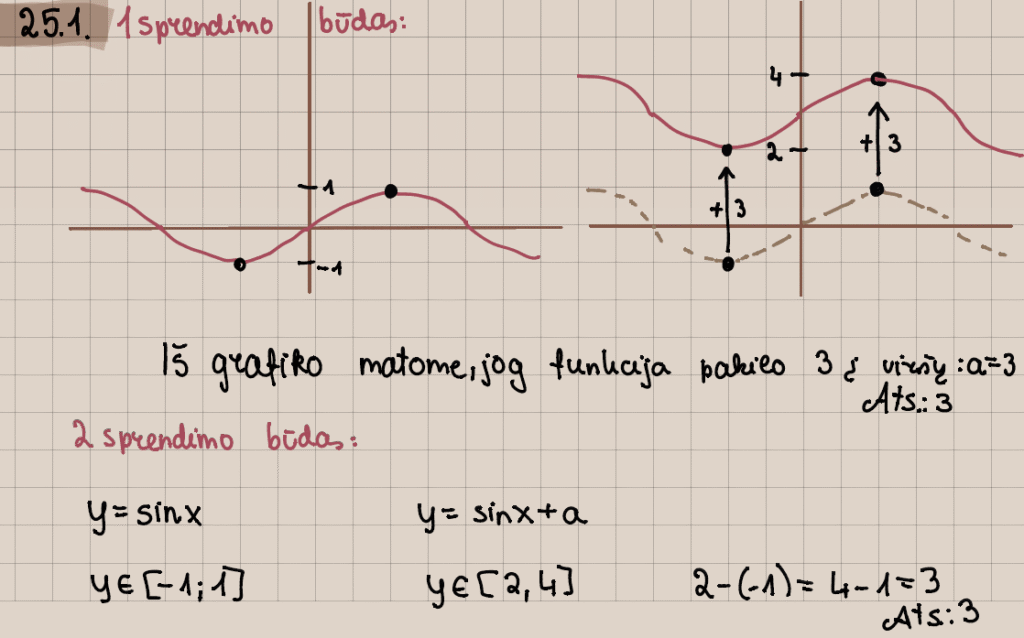 25.1. 1 sprendimo būdas:
1
-1
4
2
+3
+3
Iš grafiko matome, jog funkcija pakilo 3 į viršų: a=3
Ats.: 3
2 sprendimo būdas:
y = sinx
y = sinx + a
y ∈ [-1; 1]
y ∈ [2, 4]
2 - (-1) = 4 - 1 = 3
Ats: 3